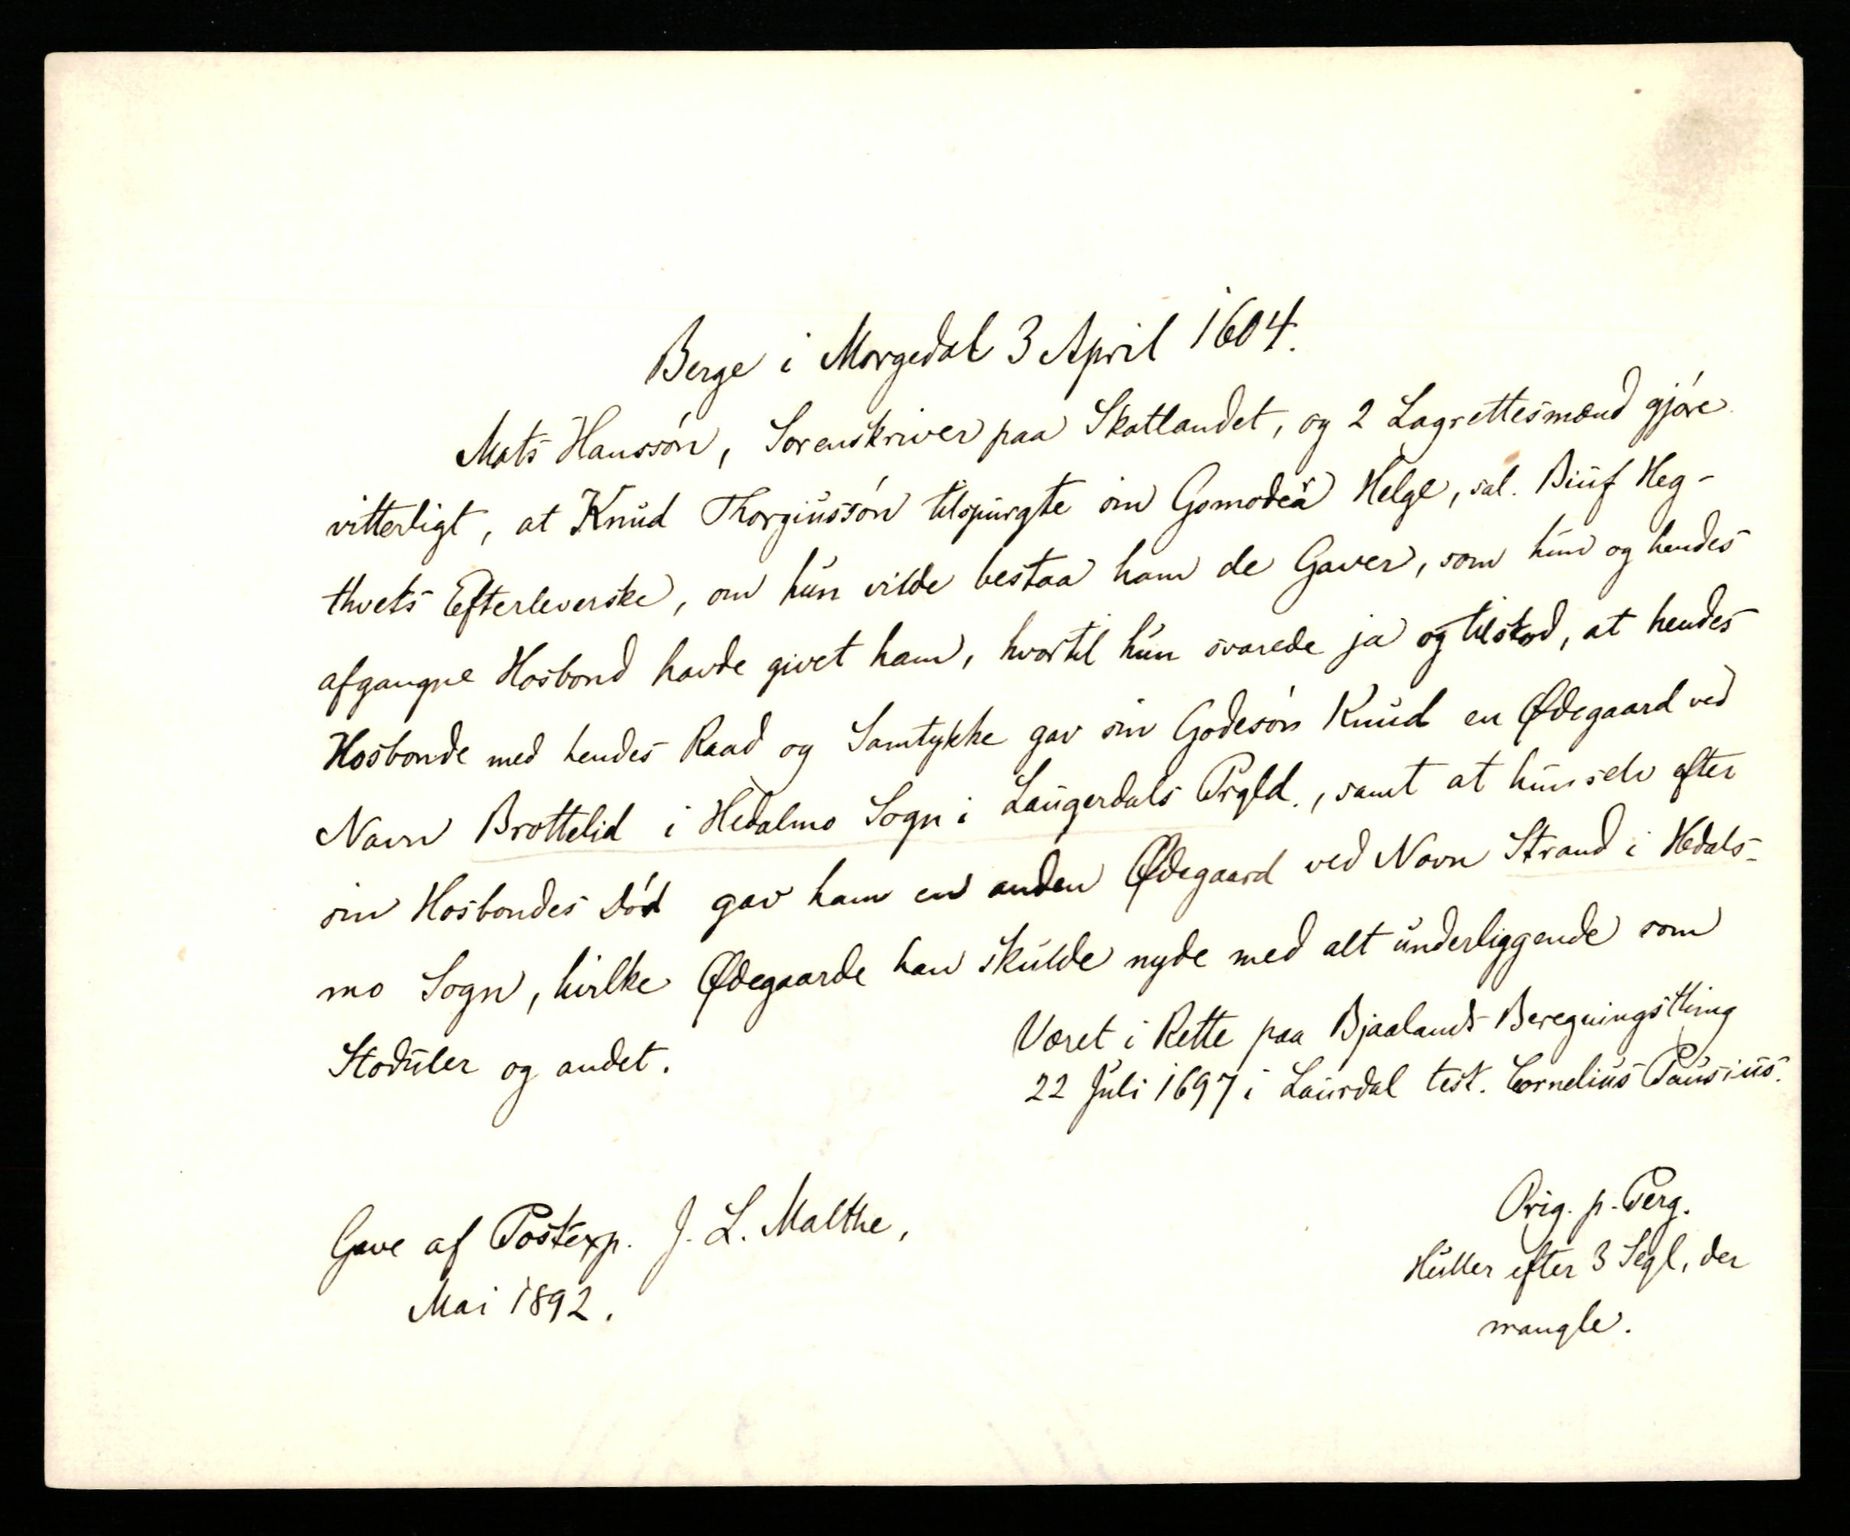 Berge i Morgedal 3 April 1604.
Mats Hanssón, Sorenskriver paa Skatlandet, og 2 Lagrettesmænd gjóre
vitterligt, at Knud Thorgiussón tilspurgte sin Helge, sal. Biuf Heg-
thvets Efterleverske, om hun vilde bestaa ham de Gaver, som hun og hendes
afgangne Hosbond havde givet ham, hvortil hun svarede ja og tilstod, at hendes
Hosbonde med hendes Raad og Samtykke gav sin Godesón Knud en Ødegaard ved
Navn Brottelid i Hedalmo Sogn i Laugerdals Prgld., samt at hun selv efter
sin Hosbondes Dód gav ham en anden Ødegaard ved Navn Strand i Hedals-
mo Sogn, hvilke Ødegaarde han skulde nyde med alt underliggende som
Stoduler og andet.
Været i Rette paa Bjaalands Beregningsthing
22 Juli 1697 i Laurdal test. Cornelius Pausius.
Gave af Postexp. J. L. Malthe,
Mai 1892.
Orig. p. Perg.
Huller efter 3 Segl, der
mangle.